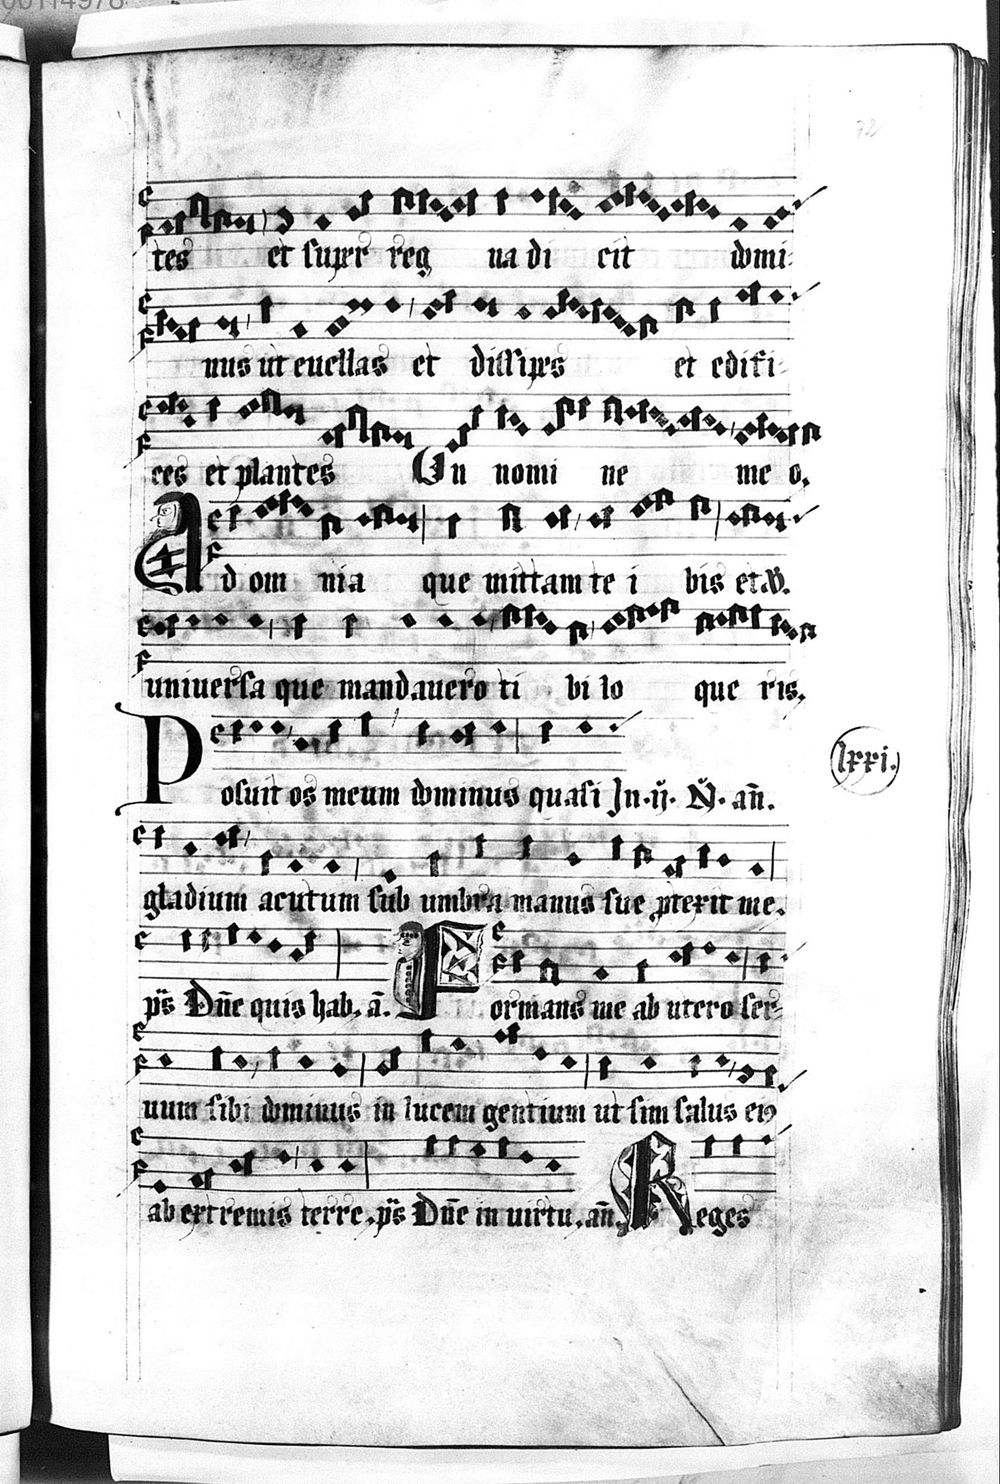 00114978
72
tes et super reg na di cit domi-
nus ut euellas et dissipes et edifi-
ces et plantes In nomi ne me o.
Ad om nia que mittam te i bis et
uniuersa que mandauero ti bi lo que ris.
Posuit os meum dominus quasi In .ij. N. an̄.
lxxi.
gladium acutum sub umbra manus sue ꝓtexit me.
ps̄ Dn̄e quis hab. a. Formans me ab utero ser-
uum sibi dominus in lucem gentium ut sim salus eiꝰ
ab extremis terre. ps̄ Dn̄e in uirtu. an̄. Reges